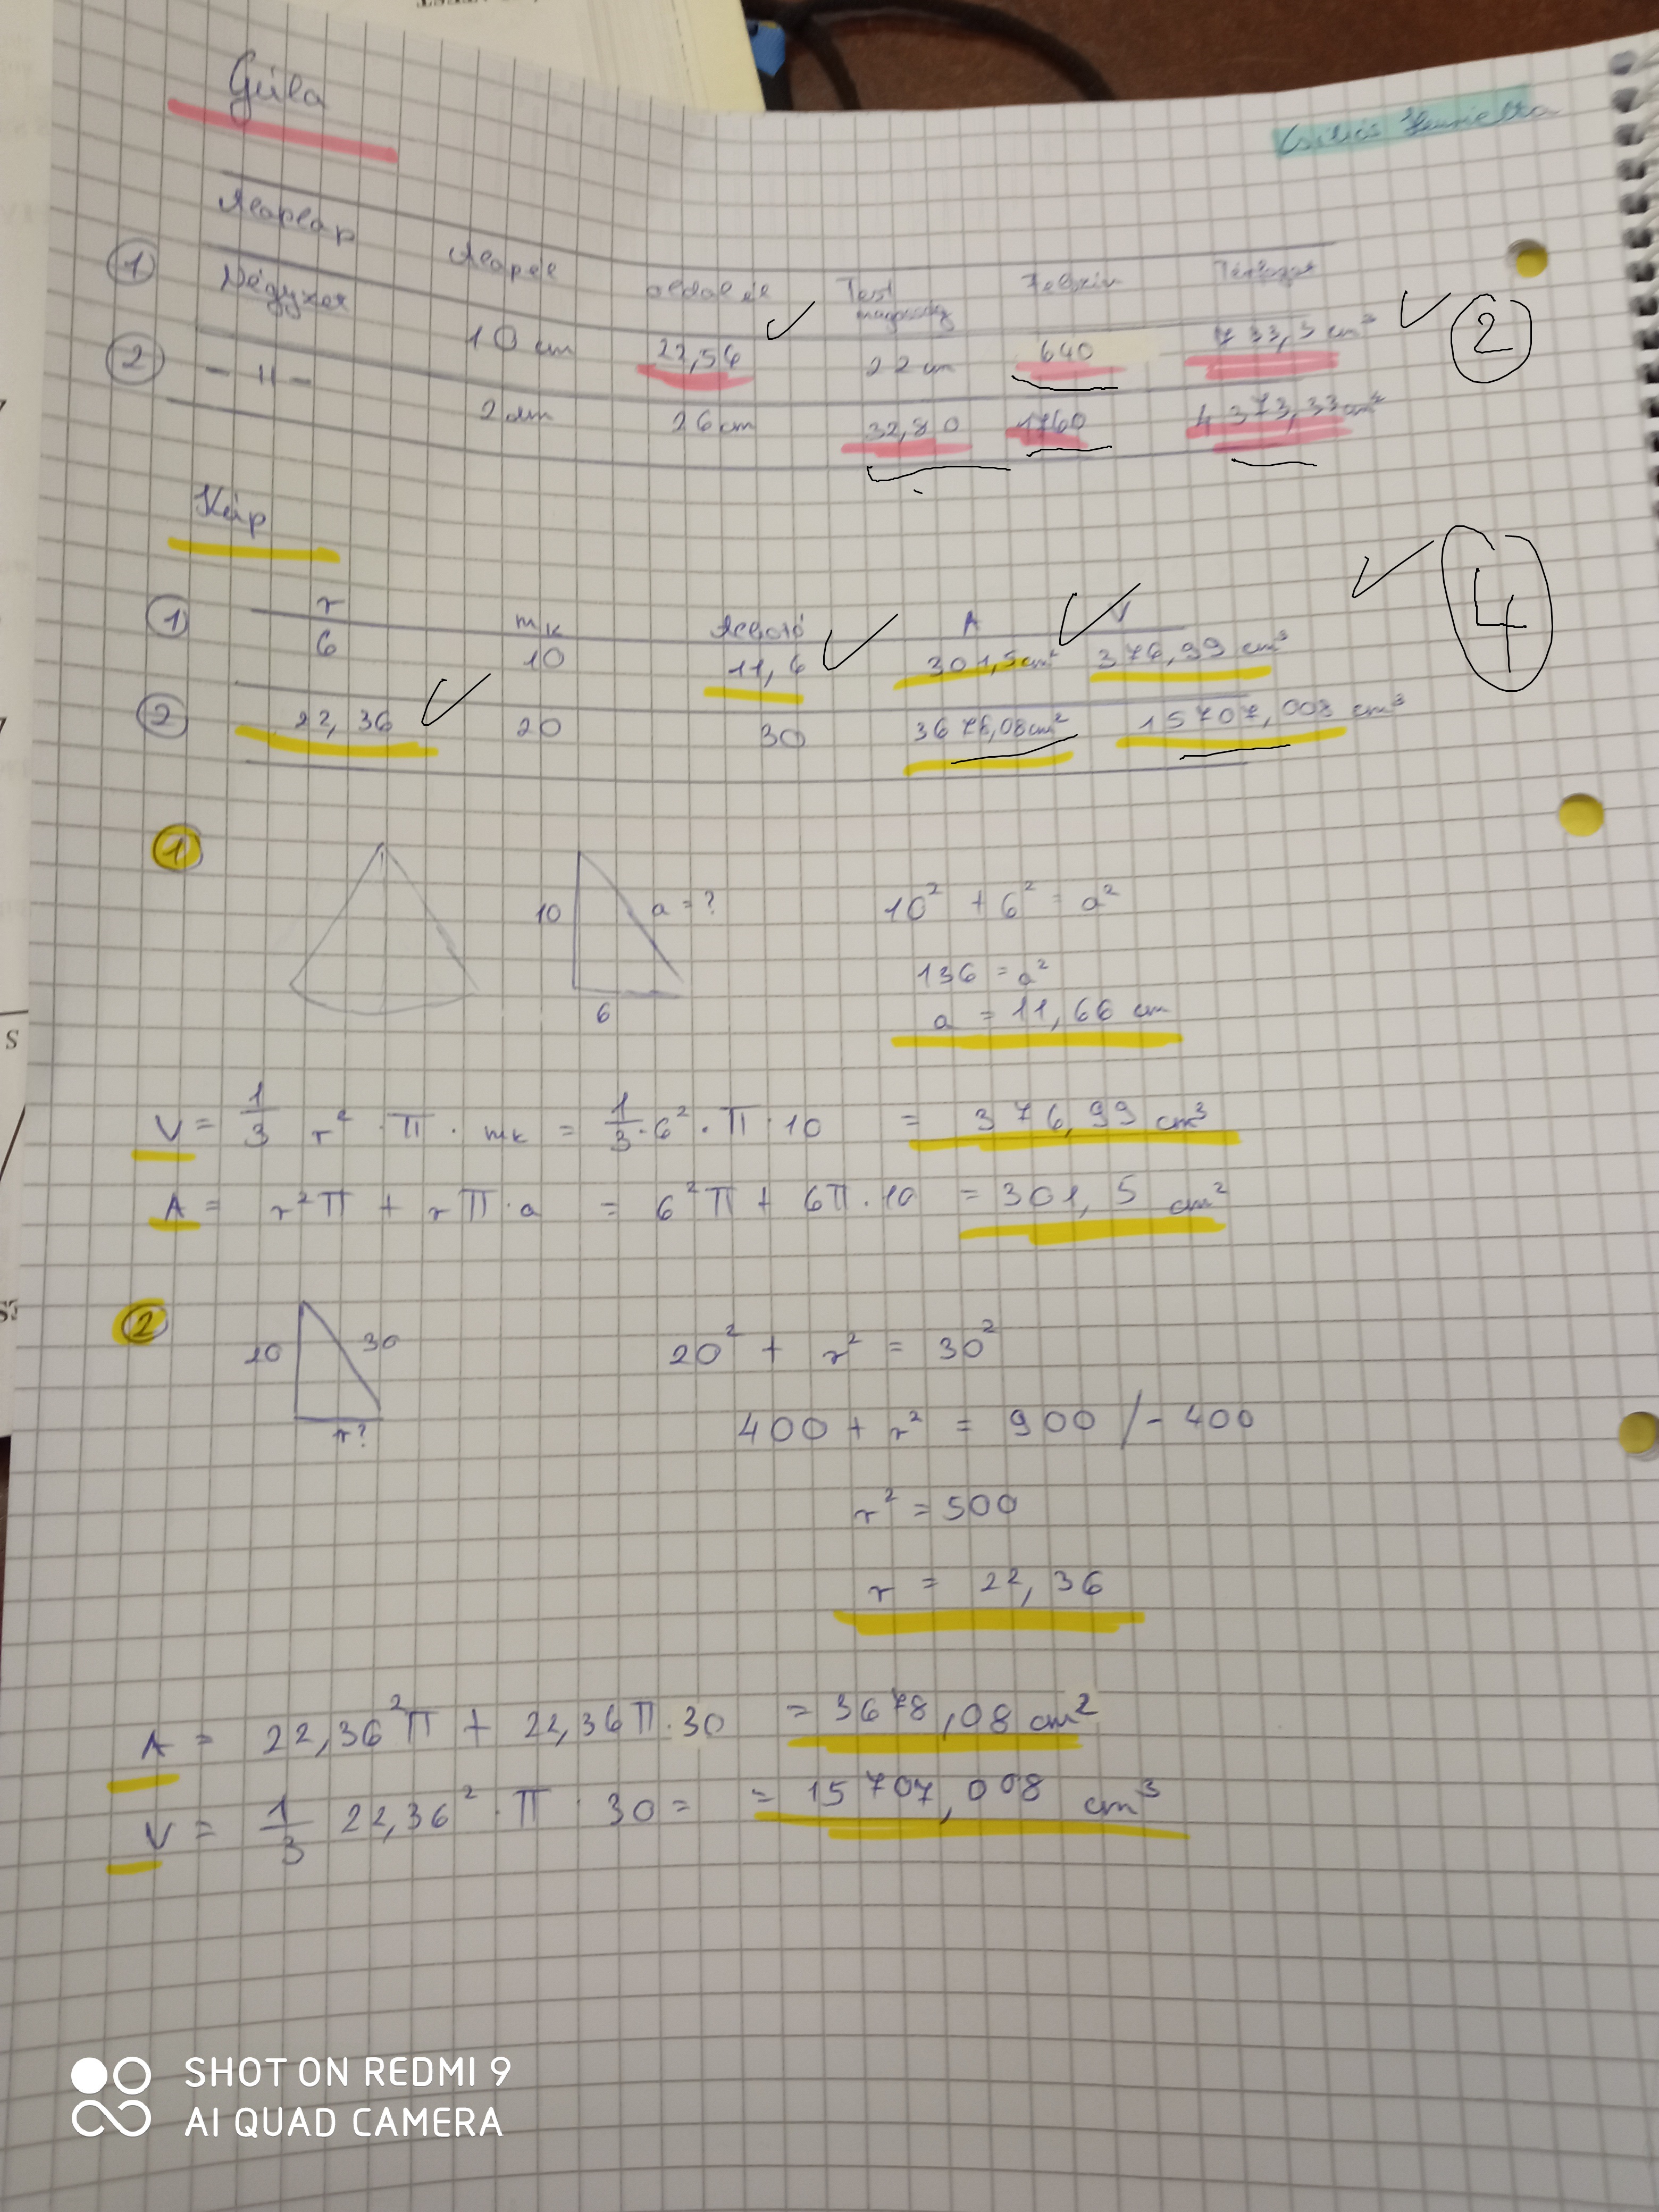 Gúla
Alaplap Alapél oldal él Test magasság Felszín Térfogat
① Négyzet 10 cm 22,56 22 cm 640 733,3 cm³ ②
② - 11 - 2 dm 26 cm 32,80 1760 4 373,33 cm³
Kúp
r mk Alkotó A V
① 6 10 11,6 301,5 cm² 376,99 cm³ 4
② 22,36 20 30 3678,08 cm² 15707,008 cm³
①
10 a = ? 6
10² + 6² = a²
136 = a²
a = 11,66 cm
V = 1/3 r² · π · mk = 1/3 · 6² · π · 10 = 376,99 cm³
A = r²π + rπ · a = 6²π + 6π · 10 = 301,5 cm²
② 20 30 r?
20² + r² = 30²
400 + r² = 900 /- 400
r² = 500
r = 22,36
A = 22,36²π + 22,36π · 30 = 3678,08 cm²
V = 1/3 22,36² · π · 30 = = 15707,008 cm³
S
SHOT ON REDMI 9
AI QUAD CAMERA